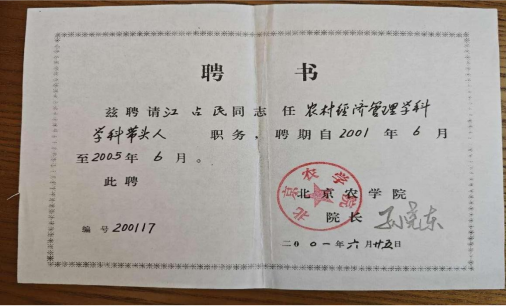 聘 书
兹聘请江占民同志任农村经济管理学科
学科带头人 职务,聘期自2001年6月
至2005年6月。
此聘
北京农学院
北京农学院
院长
编号200117
二00一年六月廿五日